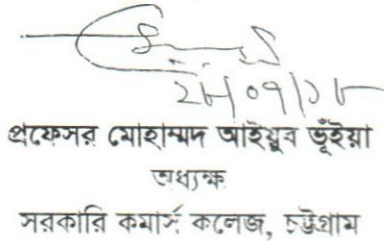 ২৮/০৭/১৮
প্রফেসর মোহাম্মদ আইয়ুব ভূঁইয়া
অধ্যক্ষ
সরকারি কমার্স কলেজ, চট্টগ্রাম